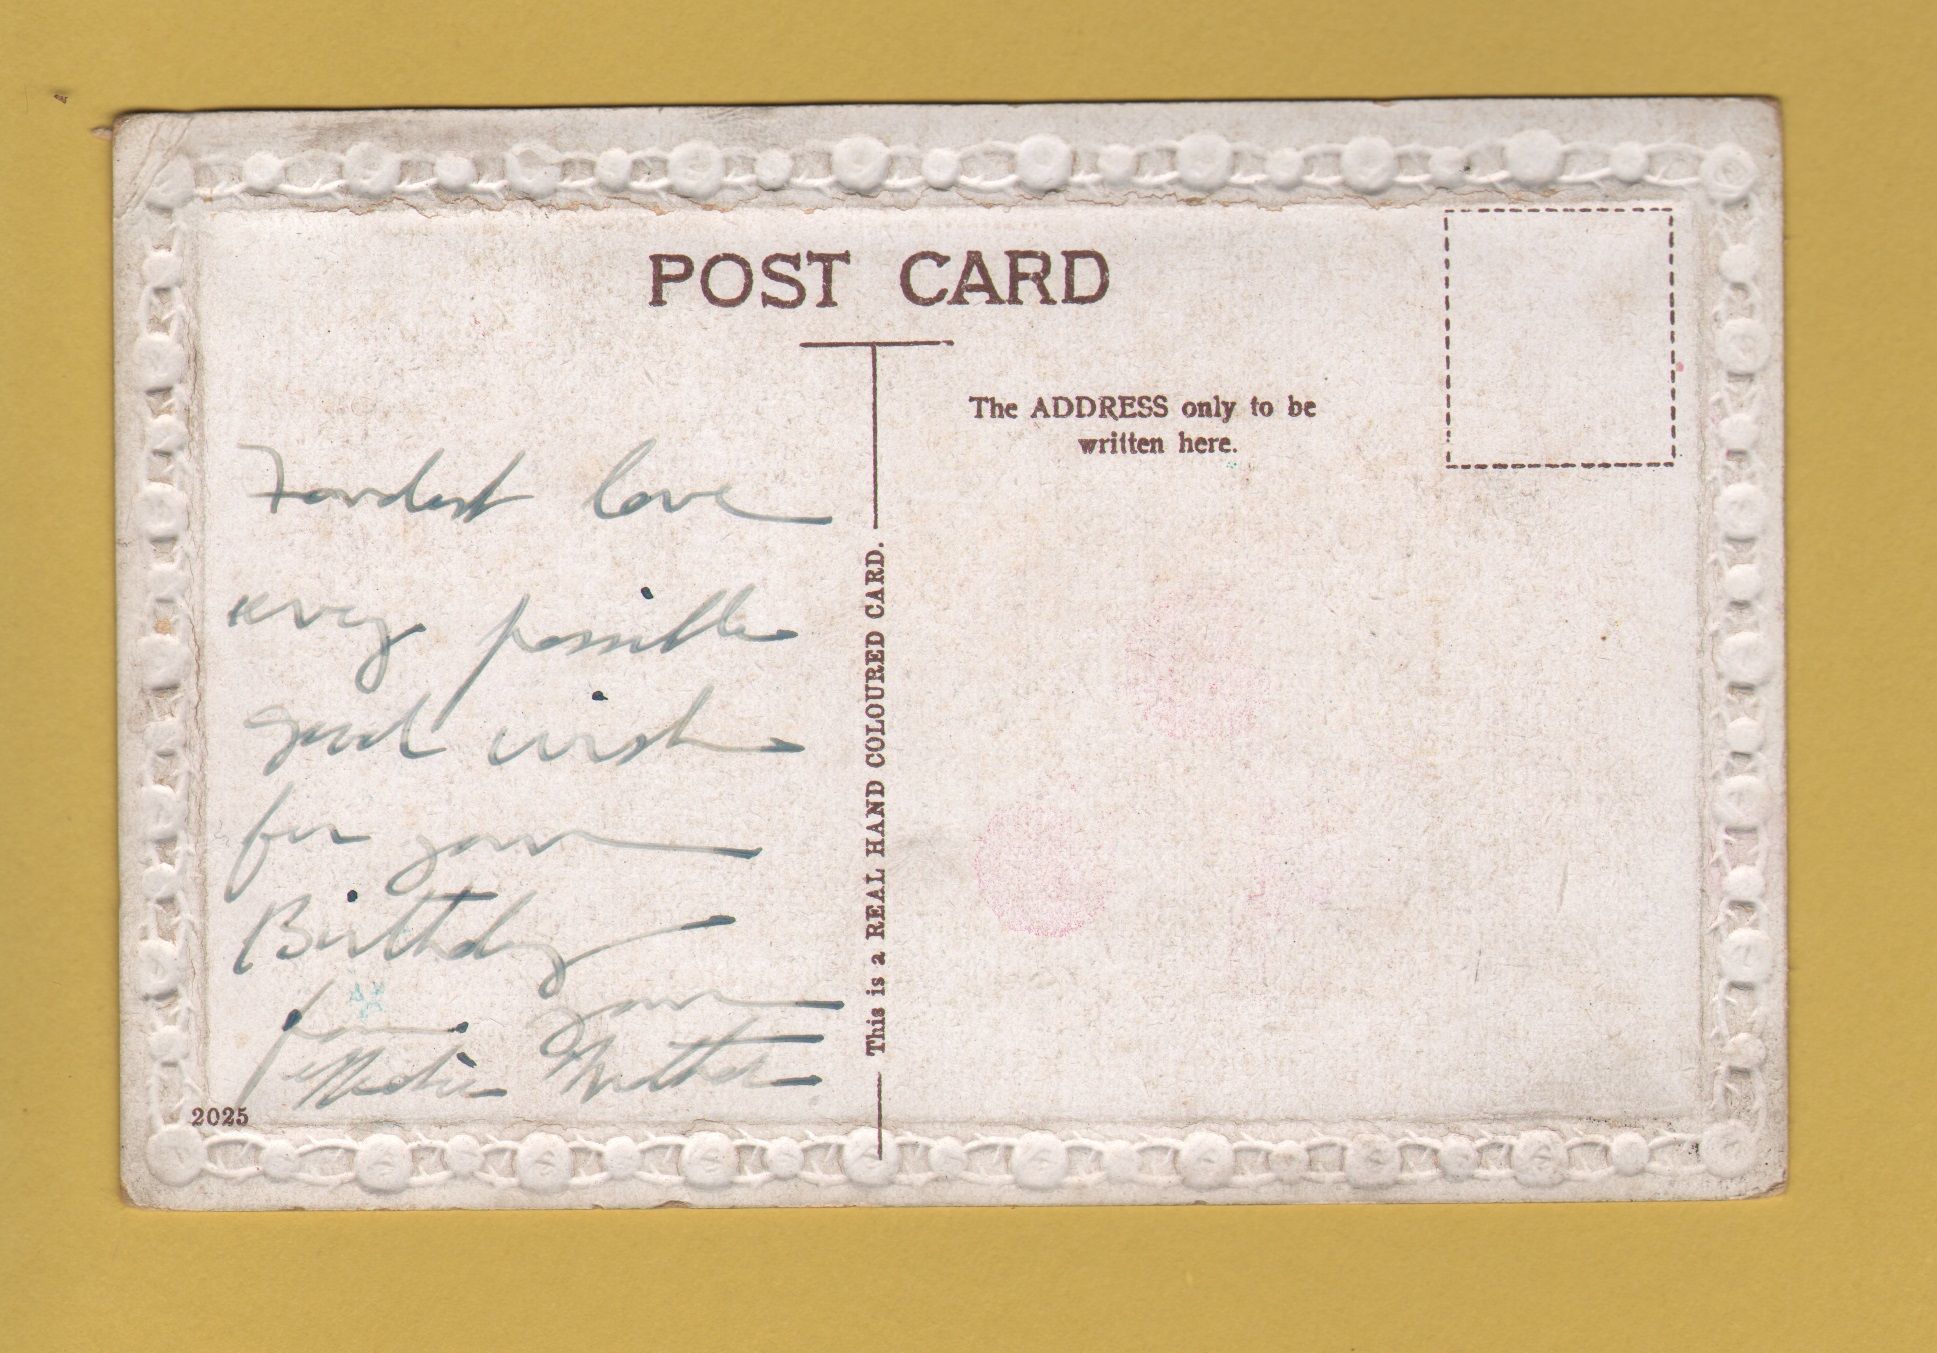 POST CARD
The ADDRESS only to be
written here.
This is a REAL HAND COLOURED CARD.
Fondest love
every possible
good wish
for your
Birthday
from your
Mother
2025